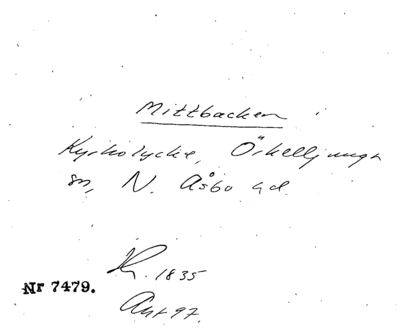 Mittbacken
Kyrkolycke, Örkelljunga
sn, N. Åsbo hd.
1835
Nr 7479.
Akt 97.